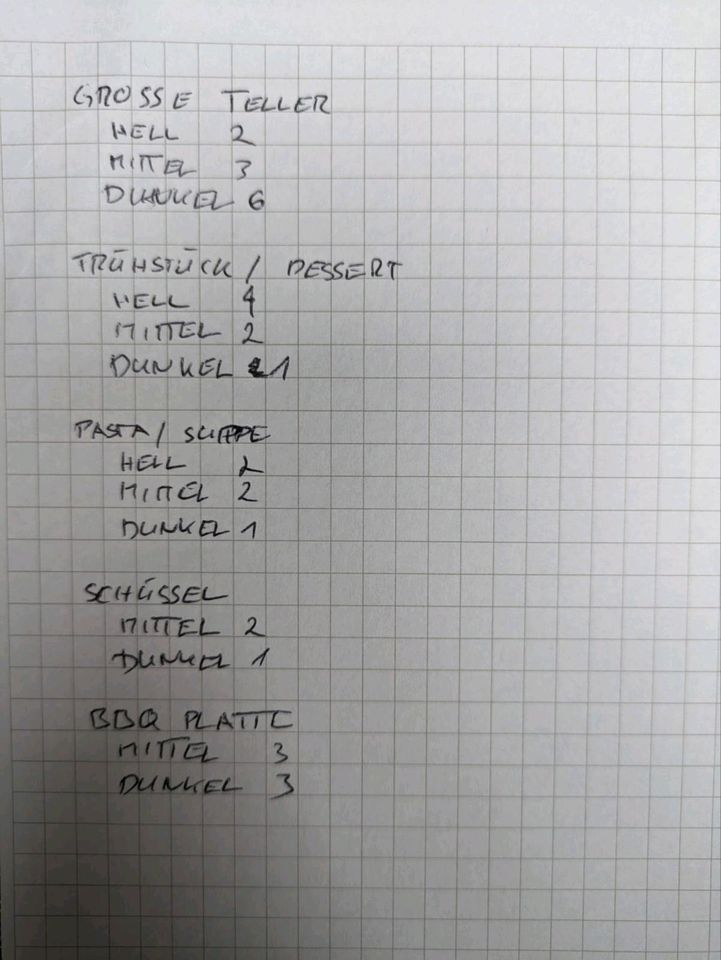 GROSSE TELLER
HELL 2
MITTEL 3
DUNKEL 6
FRÜHSTÜCK / DESSERT
HELL 4
MITTEL 2
DUNKEL 1
PASTA / SUPPE
HELL 2
MITTEL 2
DUNKEL 1
SCHÜSSEL
MITTEL 2
DUNKEL 1
BBQ PLATTE
MITTEL 3
DUNKEL 3